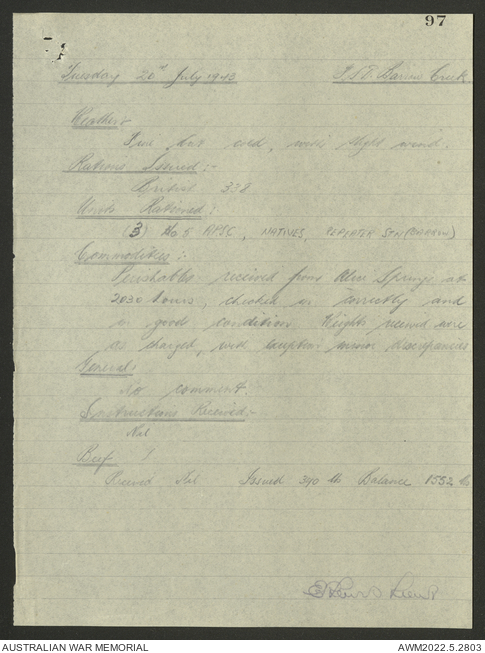 97
Tuesday 20th July 1943 Barrow Creek
Weather:-
Fine but cold, with slight wind.
Rations Issued:-
British 338
Units Rationed:
(3) No 5 APSC, NATIVES, REPEATER STN (BARROW)
Commodities:
Perishables received from Alice Springs at
2030 hours, checked in correctly and
in good condition. Weights received were
as charged, with exception minor discrepancies
General:
no comment.
Instructions Received:-
Nil
Beef
Received Nil Issued 390 lb Balance 1552 lb
Lieut
AUSTRALIAN WAR MEMORIAL AWM2022.5.2803